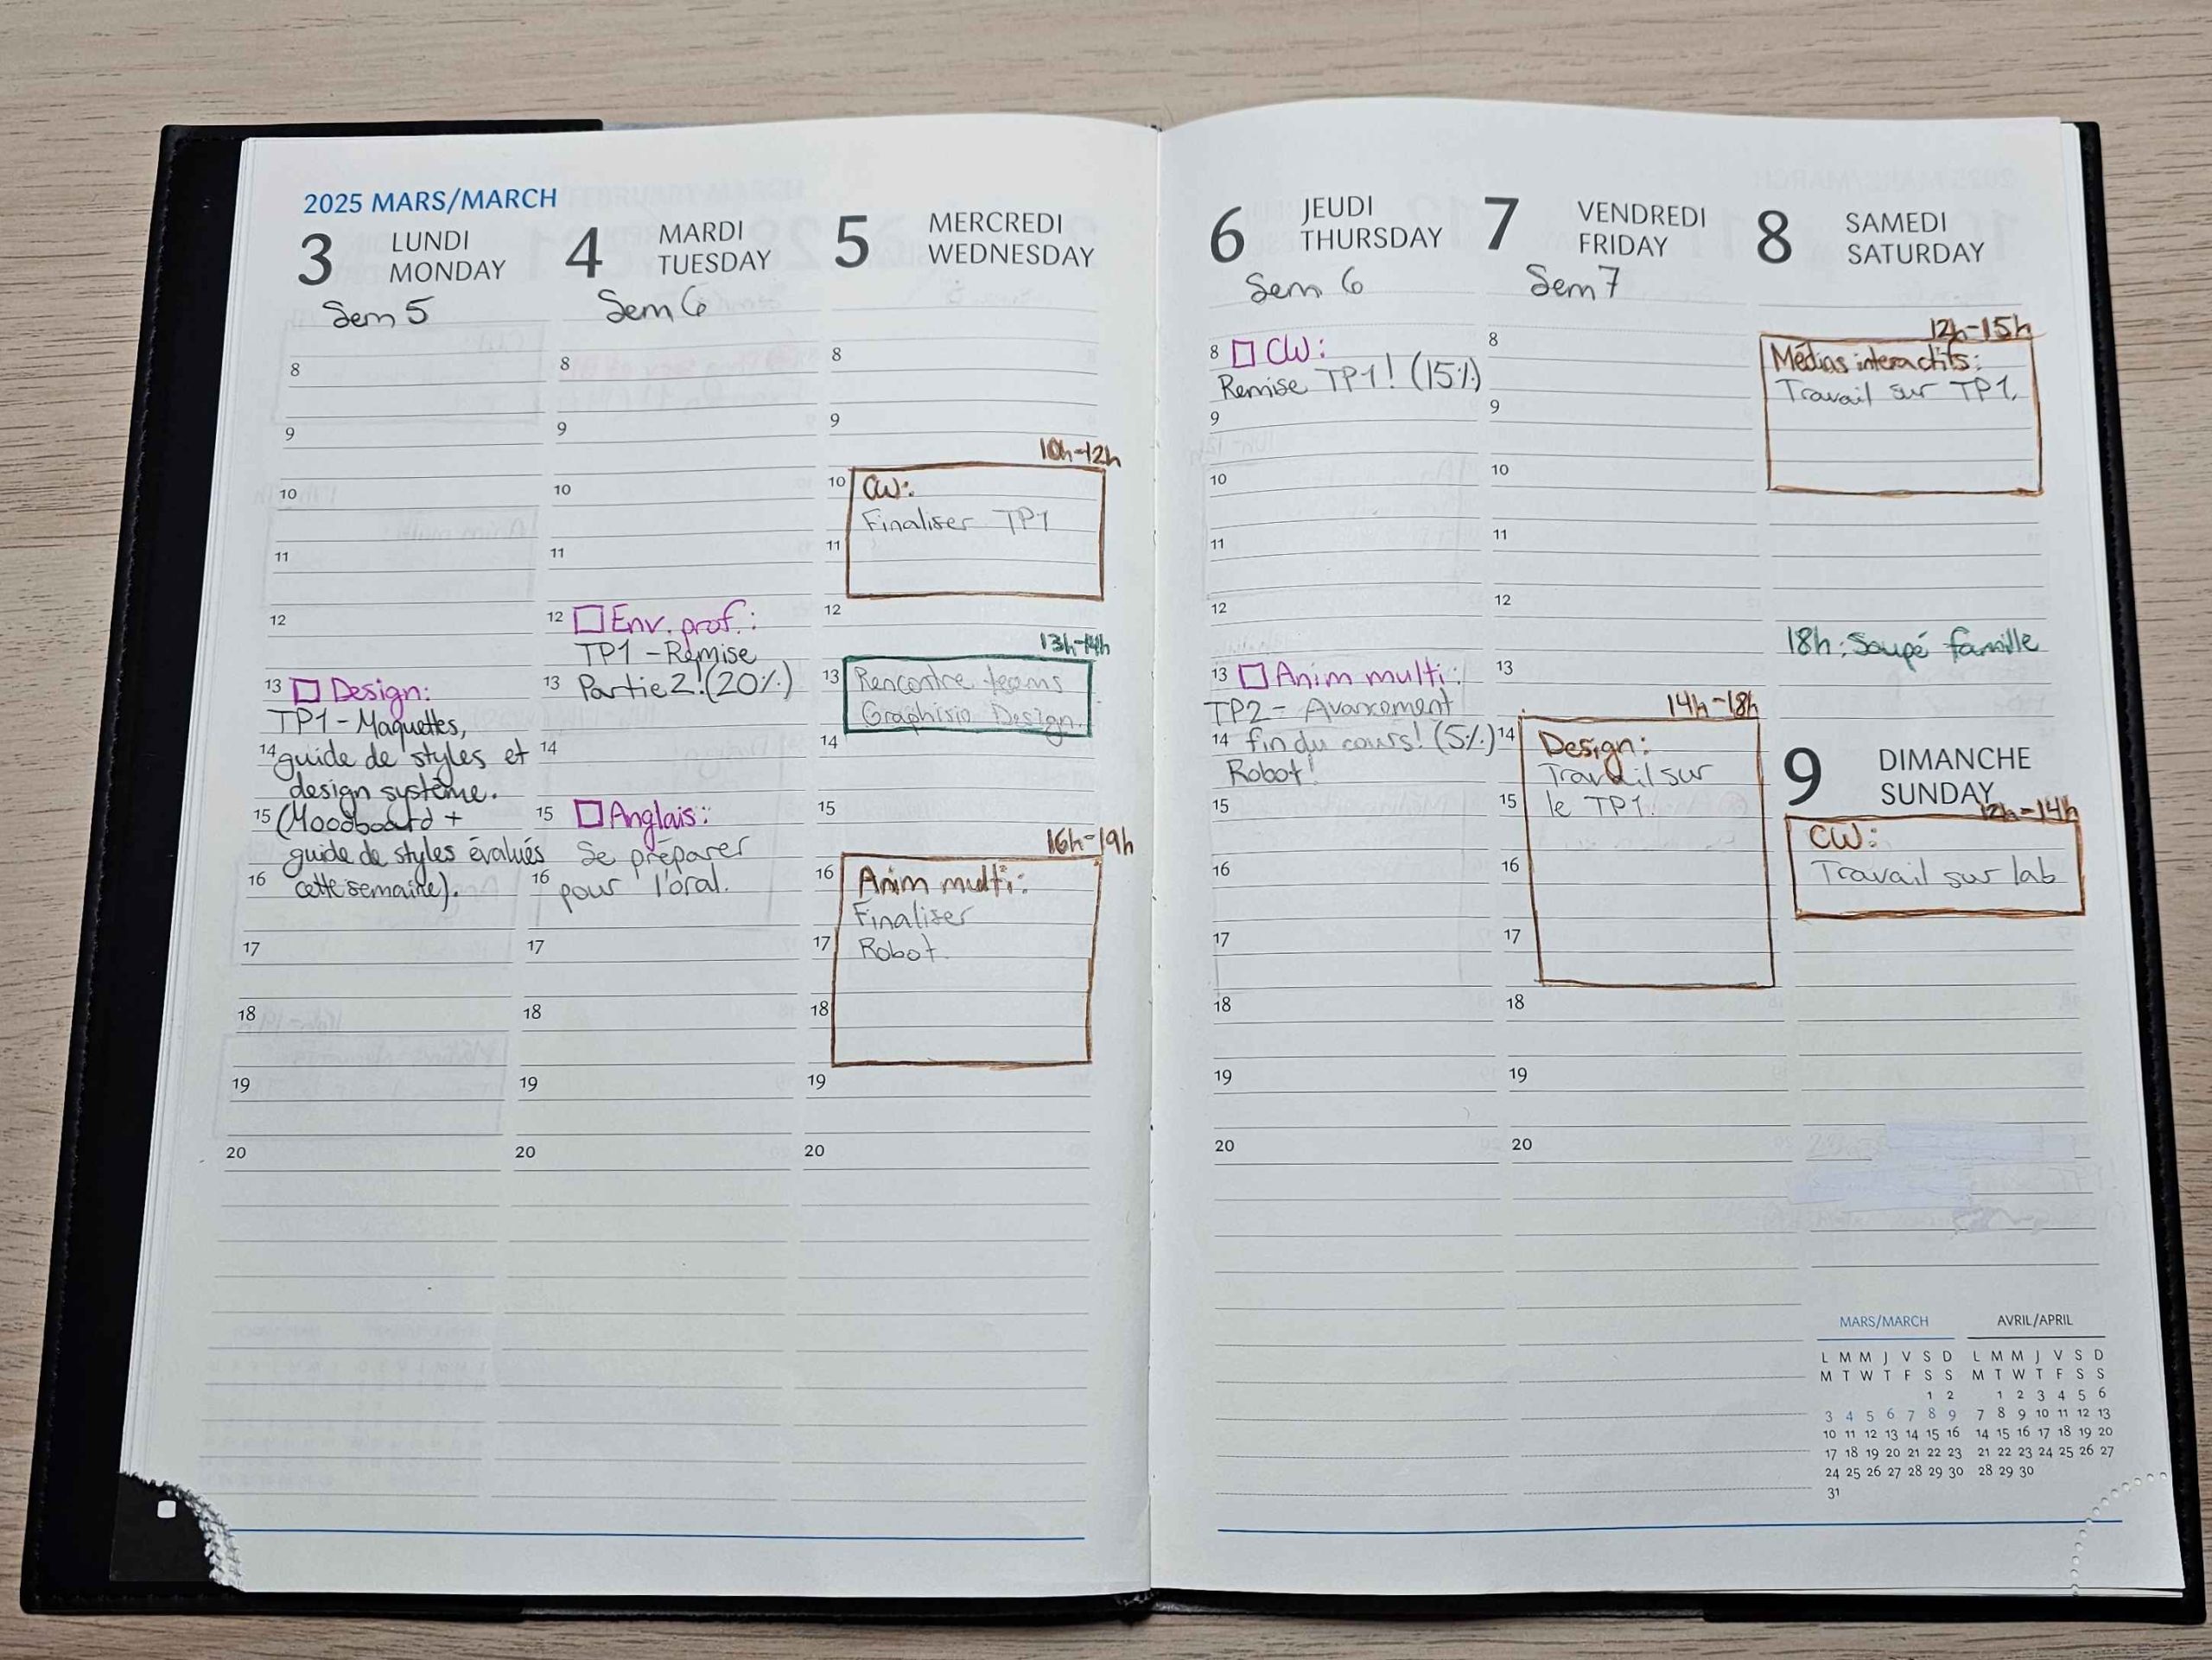 2025 MARS/MARCH
3 LUNDI
MONDAY
Sem 5
8
9
10
11
12
13 Design:
TP1 - Maquettes,
14 guide de styles et
design système.
15 (Moodboard +
guide de styles évalués
16 cette semaine).
17
18
19
20
4 MARDI
TUESDAY
Sem 6
8
9
10
11
12 Env. prof.:
TP1 - Remise
13 Partie 2! (20%)
14
15 Anglais:
Se préparer
16 pour l'oral.
17
18
19
20
5 MERCREDI
WEDNESDAY
8
9
10h-12h
10 CW:
Finaliser TP1
11
12
13h-14h
13 Rencontre teams
Graphisio Design.
14
15
16h-19h
16 Anim multi:
Finaliser
17 Robot.
18
19
20
6 JEUDI
THURSDAY
Sem 6
8 CW:
Remise TP1! (15%)
9
10
11
12
13 Anim multi:
TP2 - Avancement
14 fin du cours! (5%)
Robot!
15
16
17
18
19
20
7 VENDREDI
FRIDAY
Sem 7
8
9
10
11
12
13
14h-18h
14 Design:
Travail sur
15 le TP1.
16
17
18
19
20
8 SAMEDI
SATURDAY
12h-15h
Médias interactifs:
Travail sur TP1.
18h: Soupé famille
9 DIMANCHE
SUNDAY
12h-14h
CW:
Travail sur lab
MARS/MARCH
L M M J V S D
M T W T F S S
1 2
3 4 5 6 7 8 9
10 11 12 13 14 15 16
17 18 19 20 21 22 23
24 25 26 27 28 29 30
31
AVRIL/APRIL
L M M J V S D
M T W T F S S
1 2 3 4 5 6
7 8 9 10 11 12 13
14 15 16 17 18 19 20
21 22 23 24 25 26 27
28 29 30